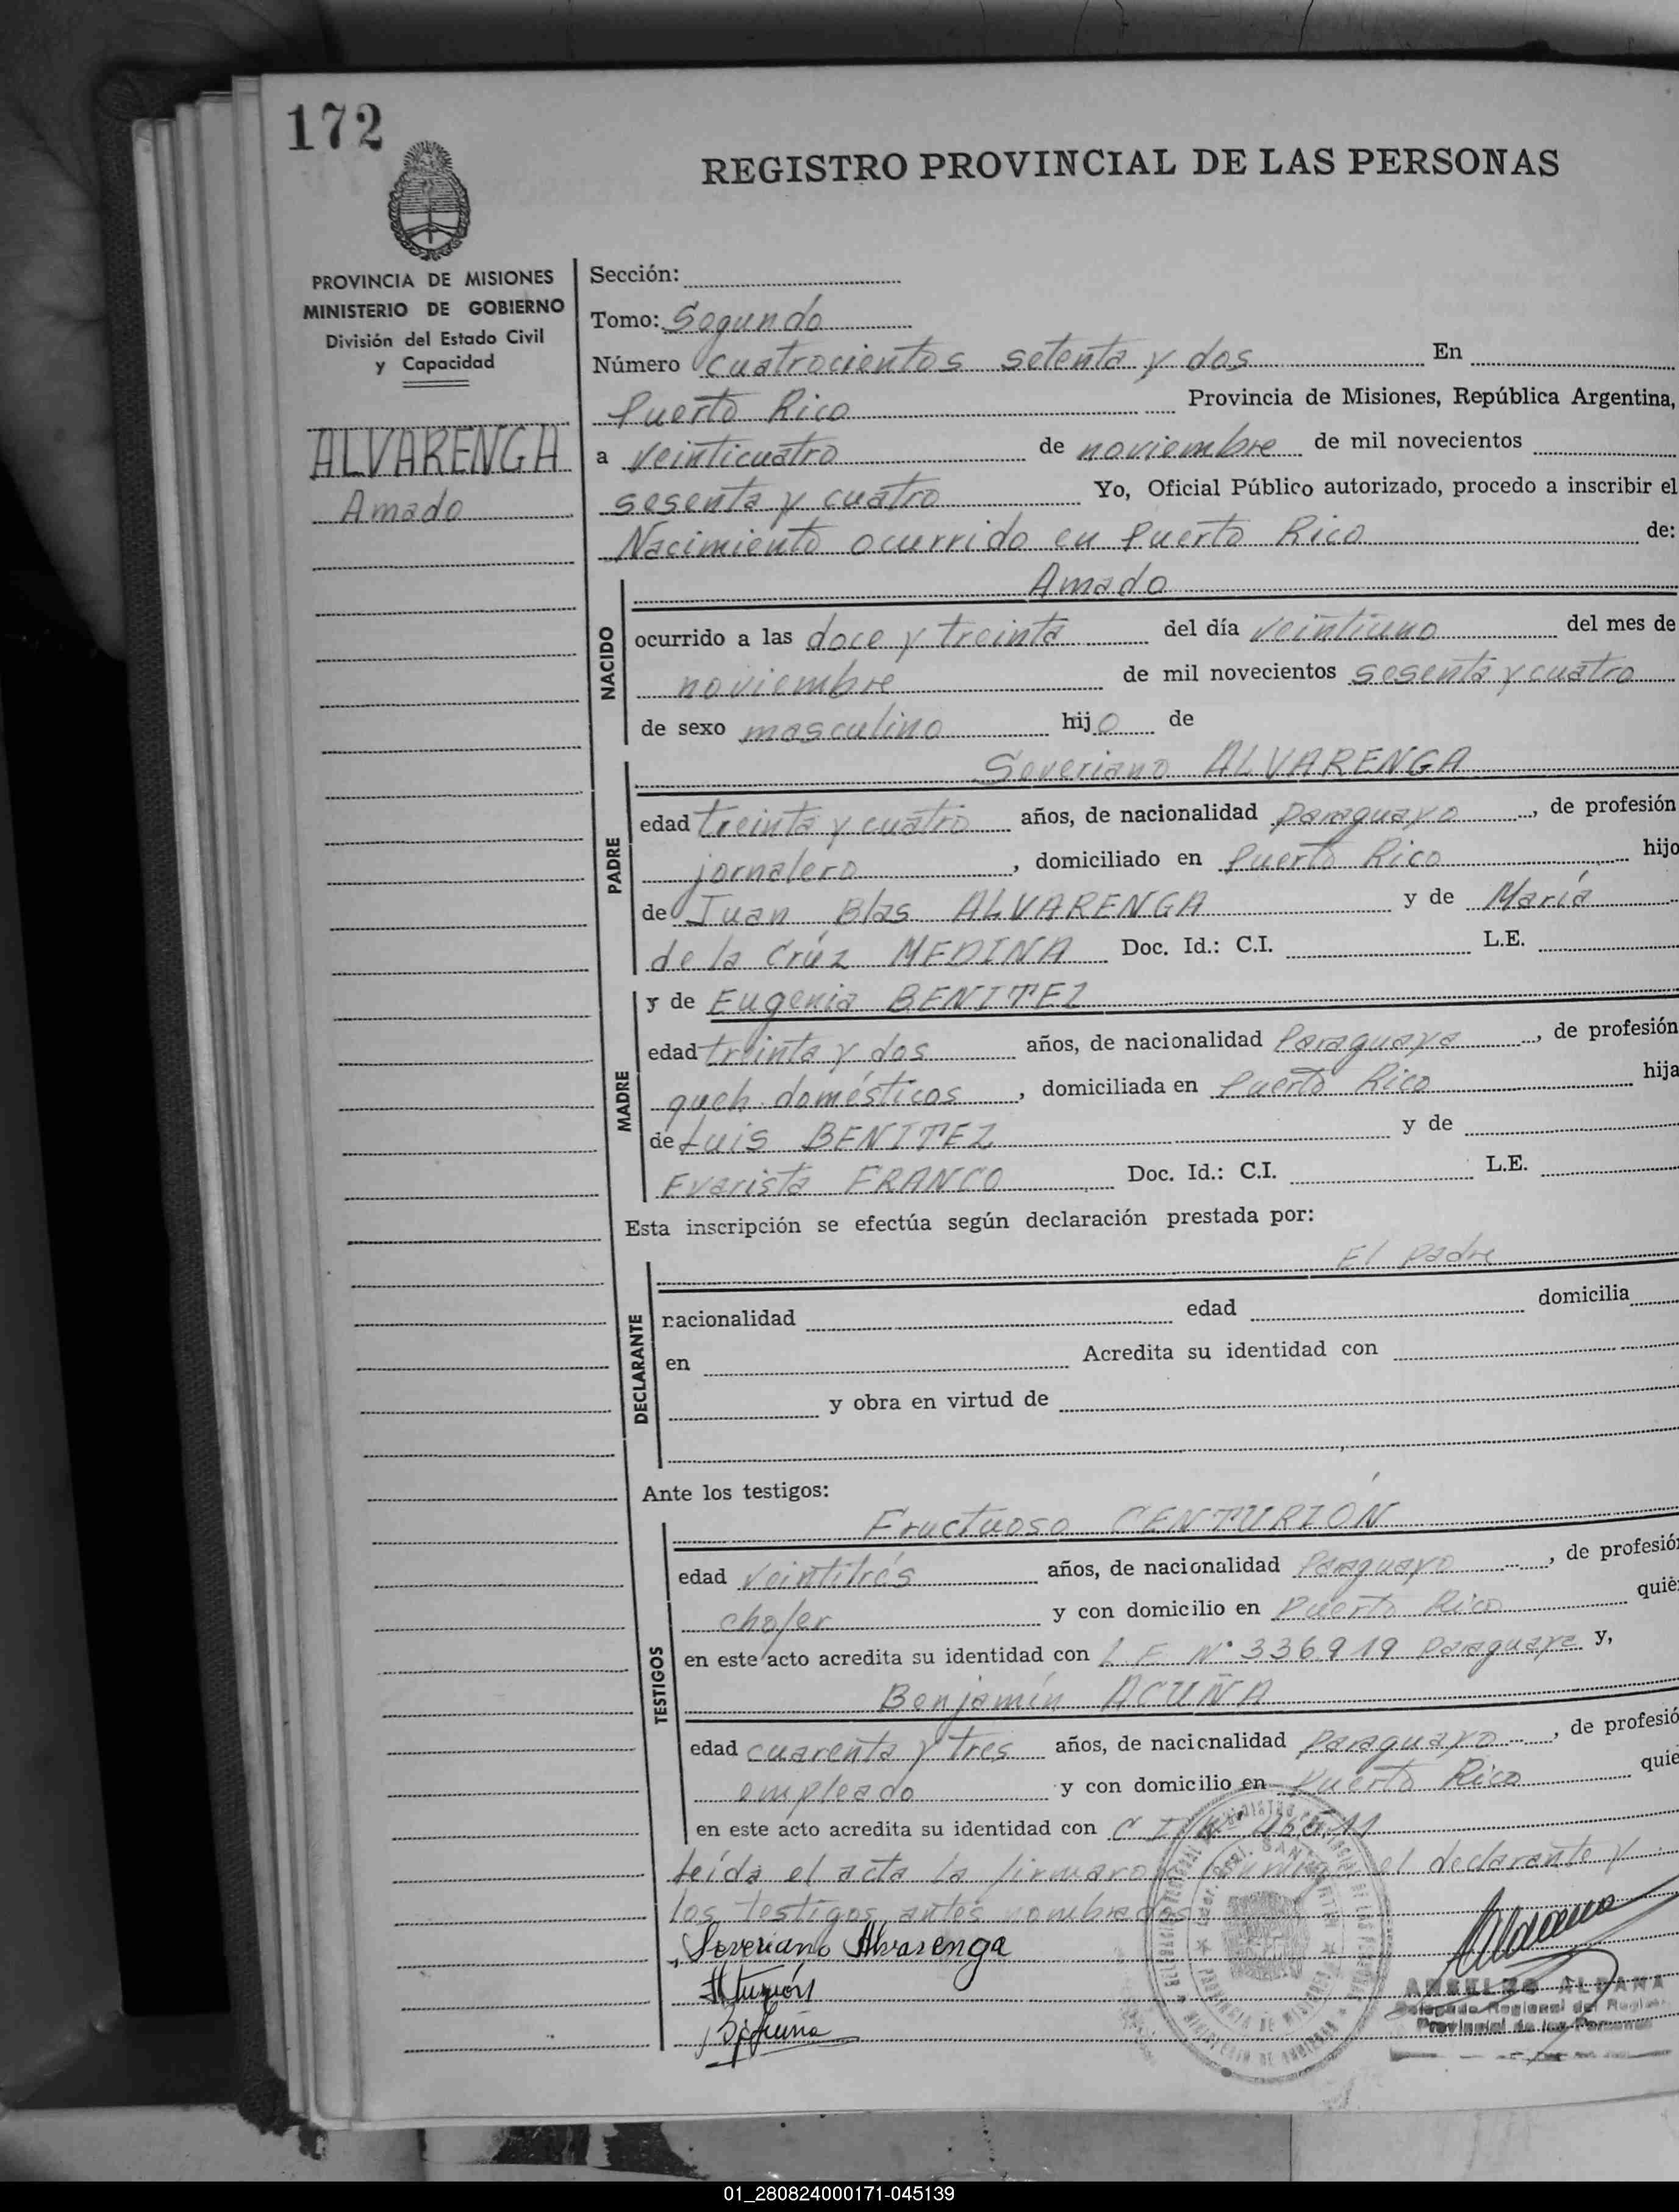 172
REGISTRO PROVINCIAL DE LAS PERSONAS
PROVINCIA DE MISIONES
MINISTERIO DE GOBIERNO
División del Estado Civil
y Capacidad
ALVARENGA
Amado
Sección:
Tomo: Segundo
Número cuatrocientos setenta y dos En
Puerto Rico Provincia de Misiones, República Argentina,
a veinticuatro de noviembre de mil novecientos
sesenta y cuatro Yo, Oficial Público autorizado, procedo a inscribir el
Nacimiento ocurrido en Puerto Rico de:
NACIDO
Amado
ocurrido a las doce y treinta del día veintiuno del mes de
noviembre de mil novecientos sesenta y cuatro
de sexo masculino hijo de
PADRE
Severiano ALVARENGA
edad treinta y cuatro años, de nacionalidad paraguayo, de profesión
jornalero, domiciliado en Puerto Rico hijo
de Juan Blas ALVARENGA y de María
de la Crúz MEDINA Doc. Id.: C.I. L.E.
MADRE
y de Eugenia BENITEZ
edad treinta y dos años, de nacionalidad Paraguaya, de profesión
queh. domésticos, domiciliada en Puerto Rico hija
de Luis BENITEZ y de
Evarista FRANCO Doc. Id.: C.I. L.E.
Esta inscripción se efectúa según declaración prestada por:
DECLARANTE
El padre
nacionalidad edad domicilia
en Acredita su identidad con
y obra en virtud de
Ante los testigos:
TESTIGOS
Fructuoso CENTURIÓN
edad veintitrés años, de nacionalidad Paraguayo, de profesió
chofer y con domicilio en Puerto Rico quié
en este acto acredita su identidad con L E Nº 336.919 paraguaya y,
Benjamín ACUÑA
edad cuarenta y tres años, de nacionalidad Paraguayo, de profesió
empleado y con domicilio en Puerto Rico quie
en este acto acredita su identidad con C I Nº
Leída el acta la firmaron conmigo el declarante y
los testigos antes nombrados
Severiano Alvarenga
ANSELMO ALDANA
Delegado Regional del Registro
Provincial de las Personas
01_280824000171-045139